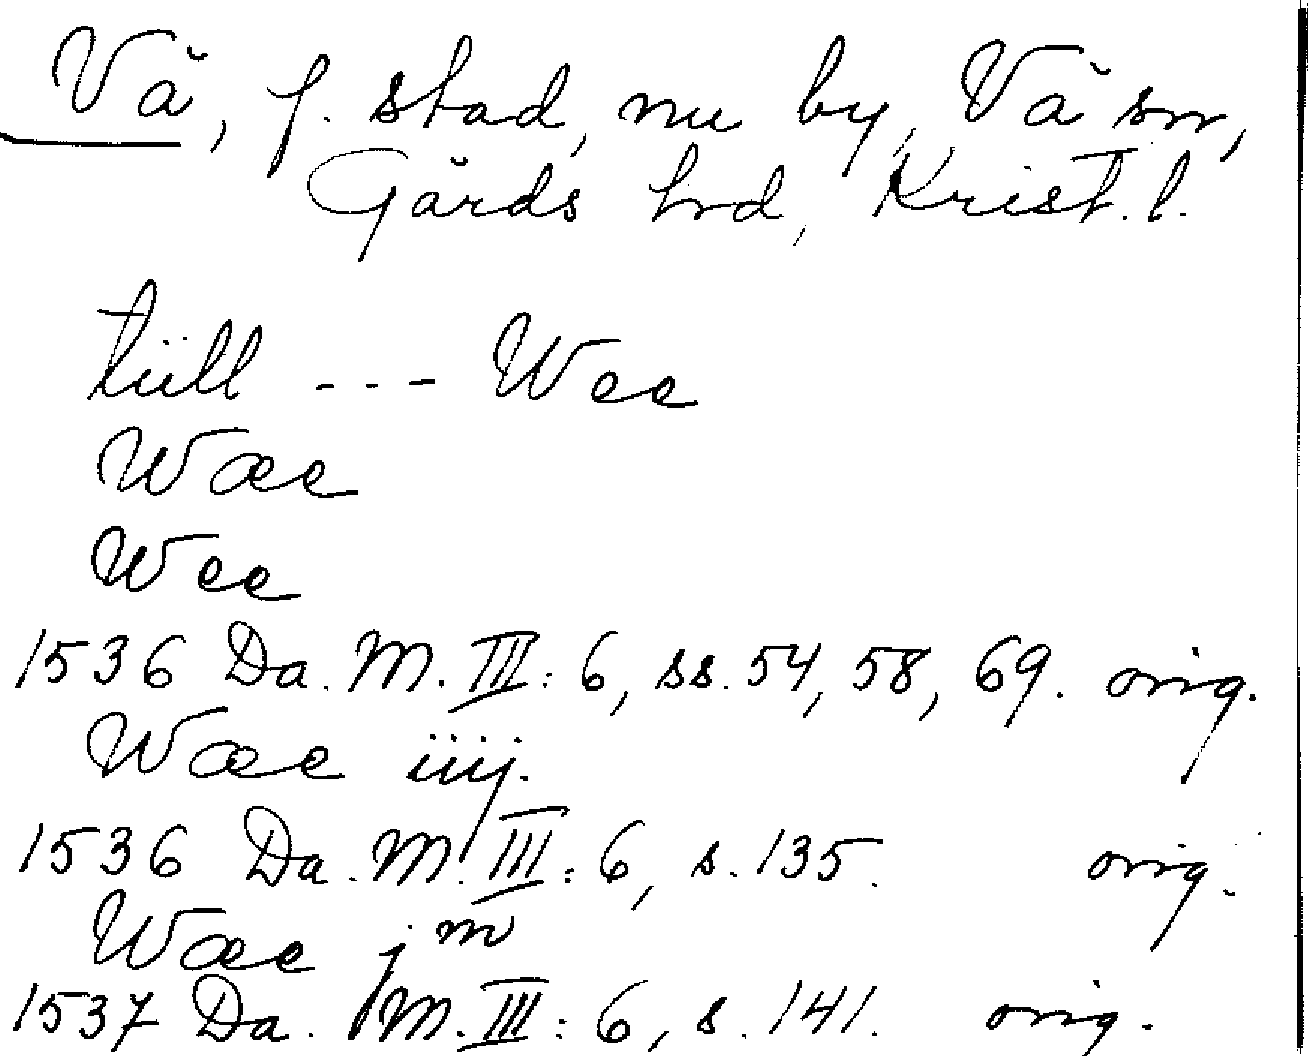 Vå, f. stad, nu by, Vå sn,
Gärds hrd, Krist. l.
tiill --- Wee
Wæe
Wee
1536 Da. M. III: 6, ss. 54, 58, 69. orig.
Wæe iiij.
1536 Da. M. III: 6, s. 135. orig.
Wæe jm
1537 Da. M. III: 6, s. 141. orig.